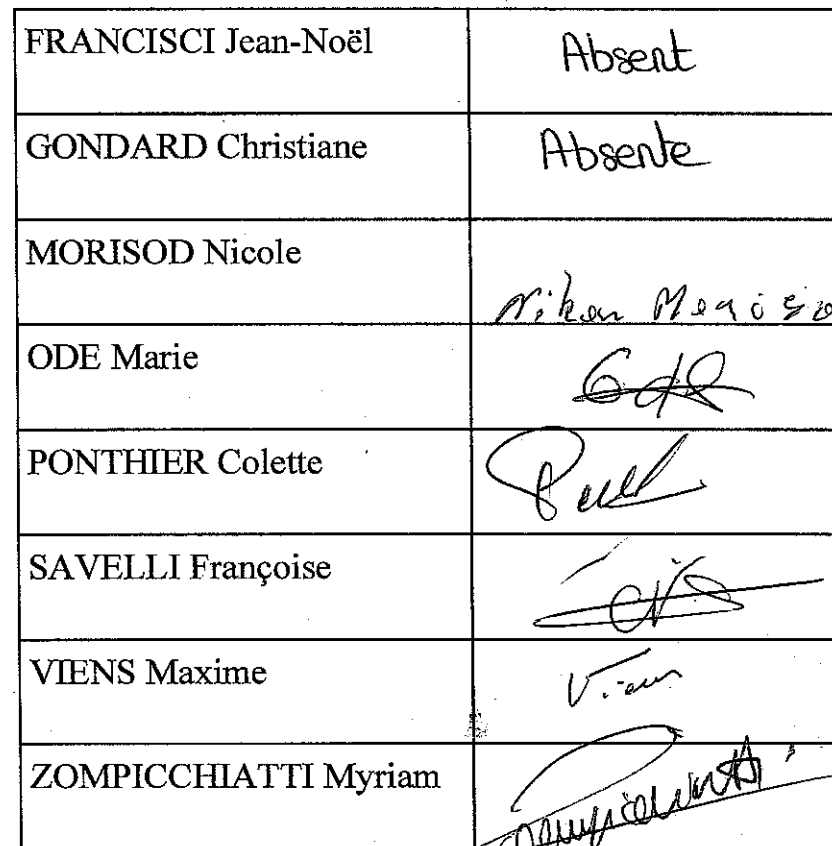 FRANCISCI Jean-Noël Absent
GONDARD Christiane Absente
MORISOD Nicole
ODE Marie
PONTHIER Colette
SAVELLI Françoise
VIENS Maxime
ZOMPICCHIATTI Myriam